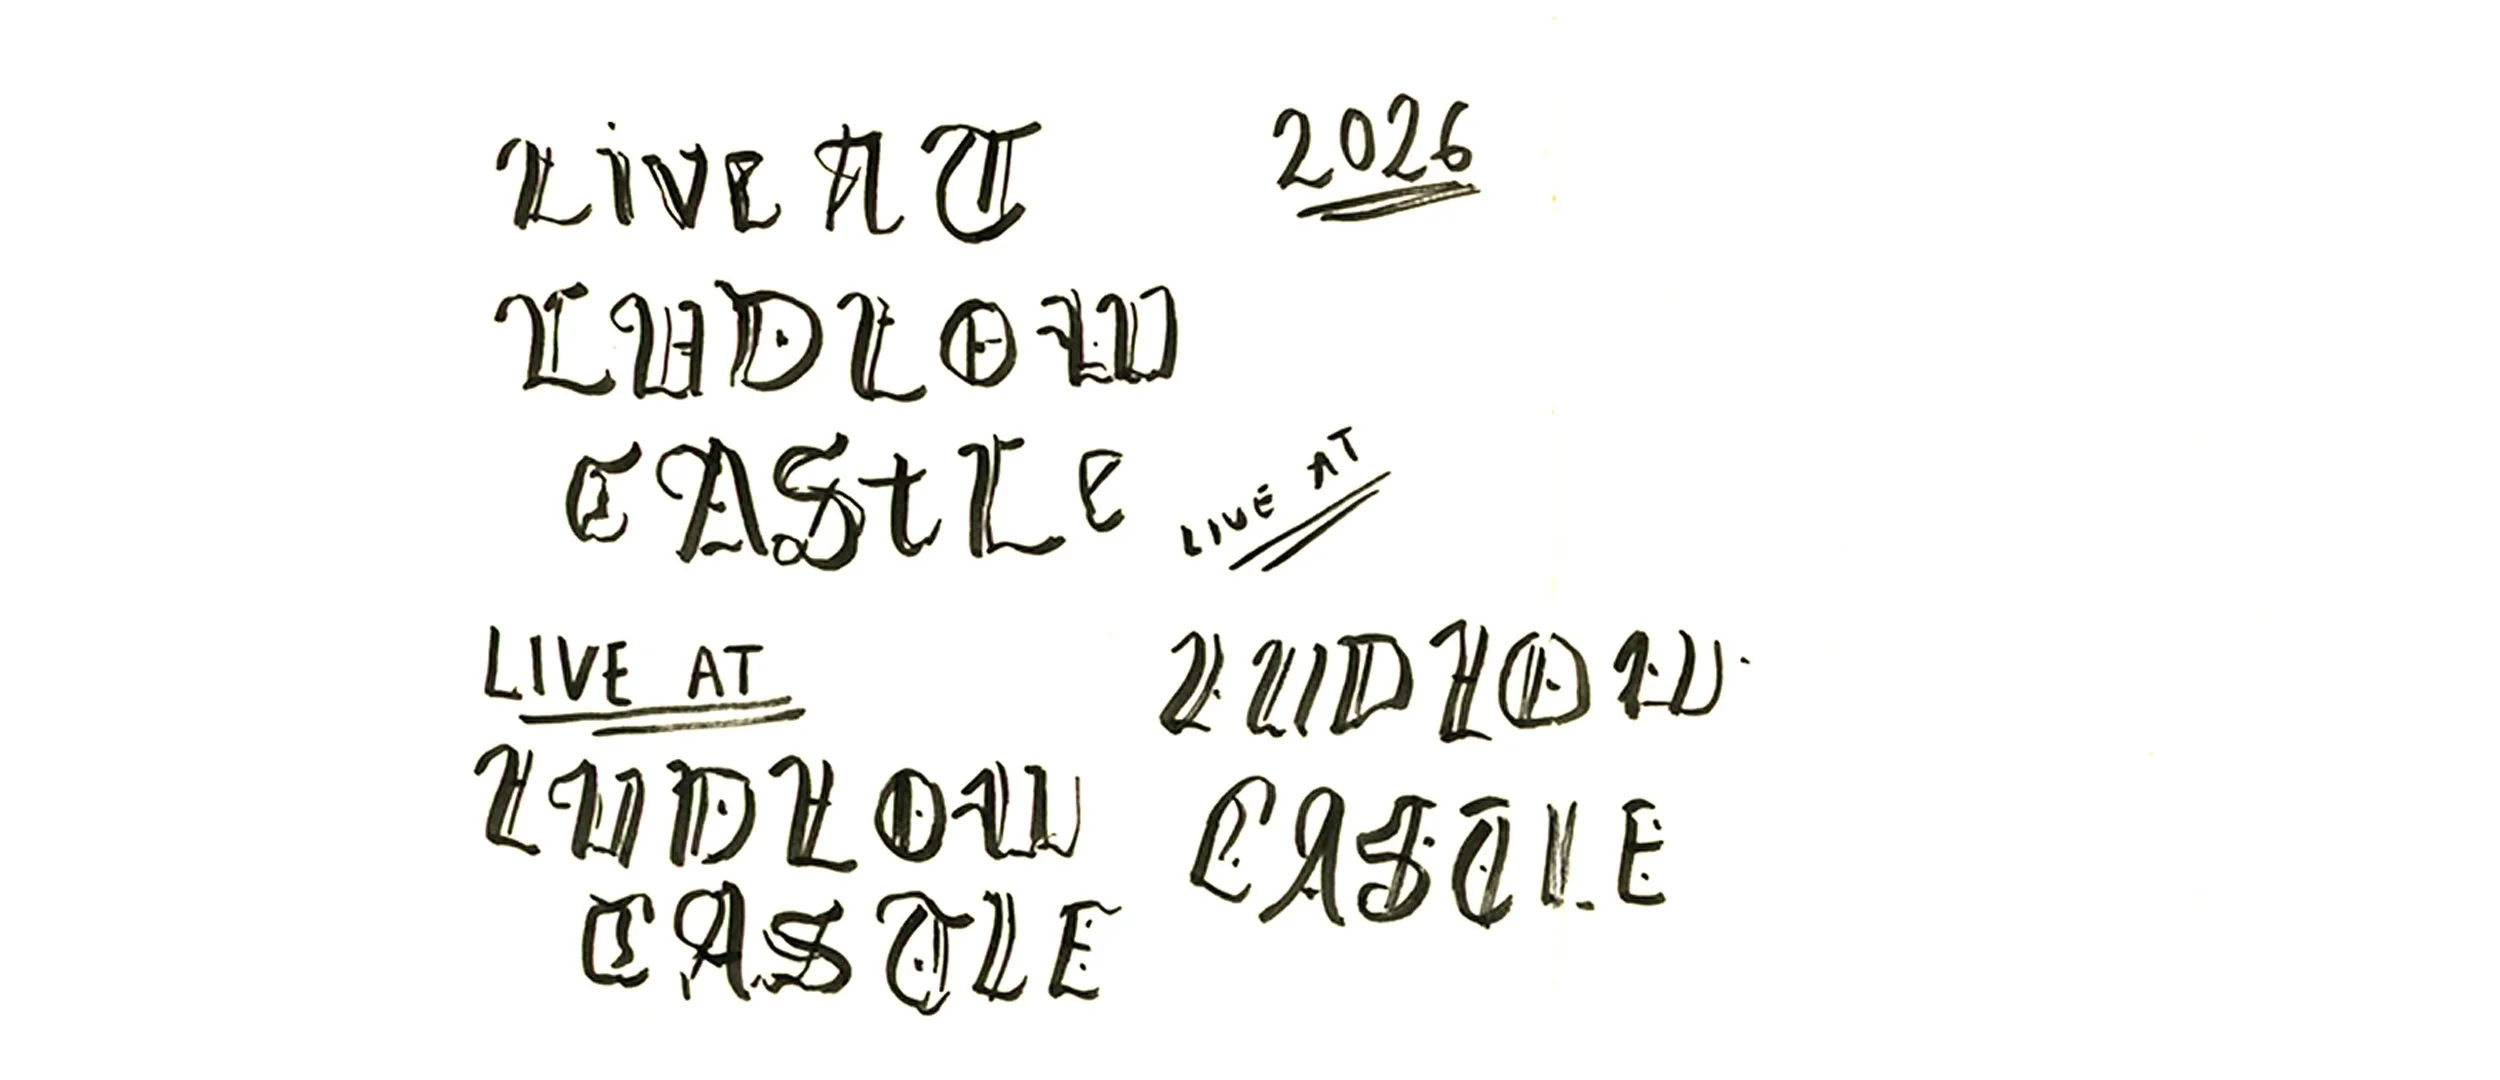 LiVE AT
2026
LUDLOW
CAStLe
LIVE AT
LIVE AT
LUDLOW
CASTLE
LUDLOW
CASTLE